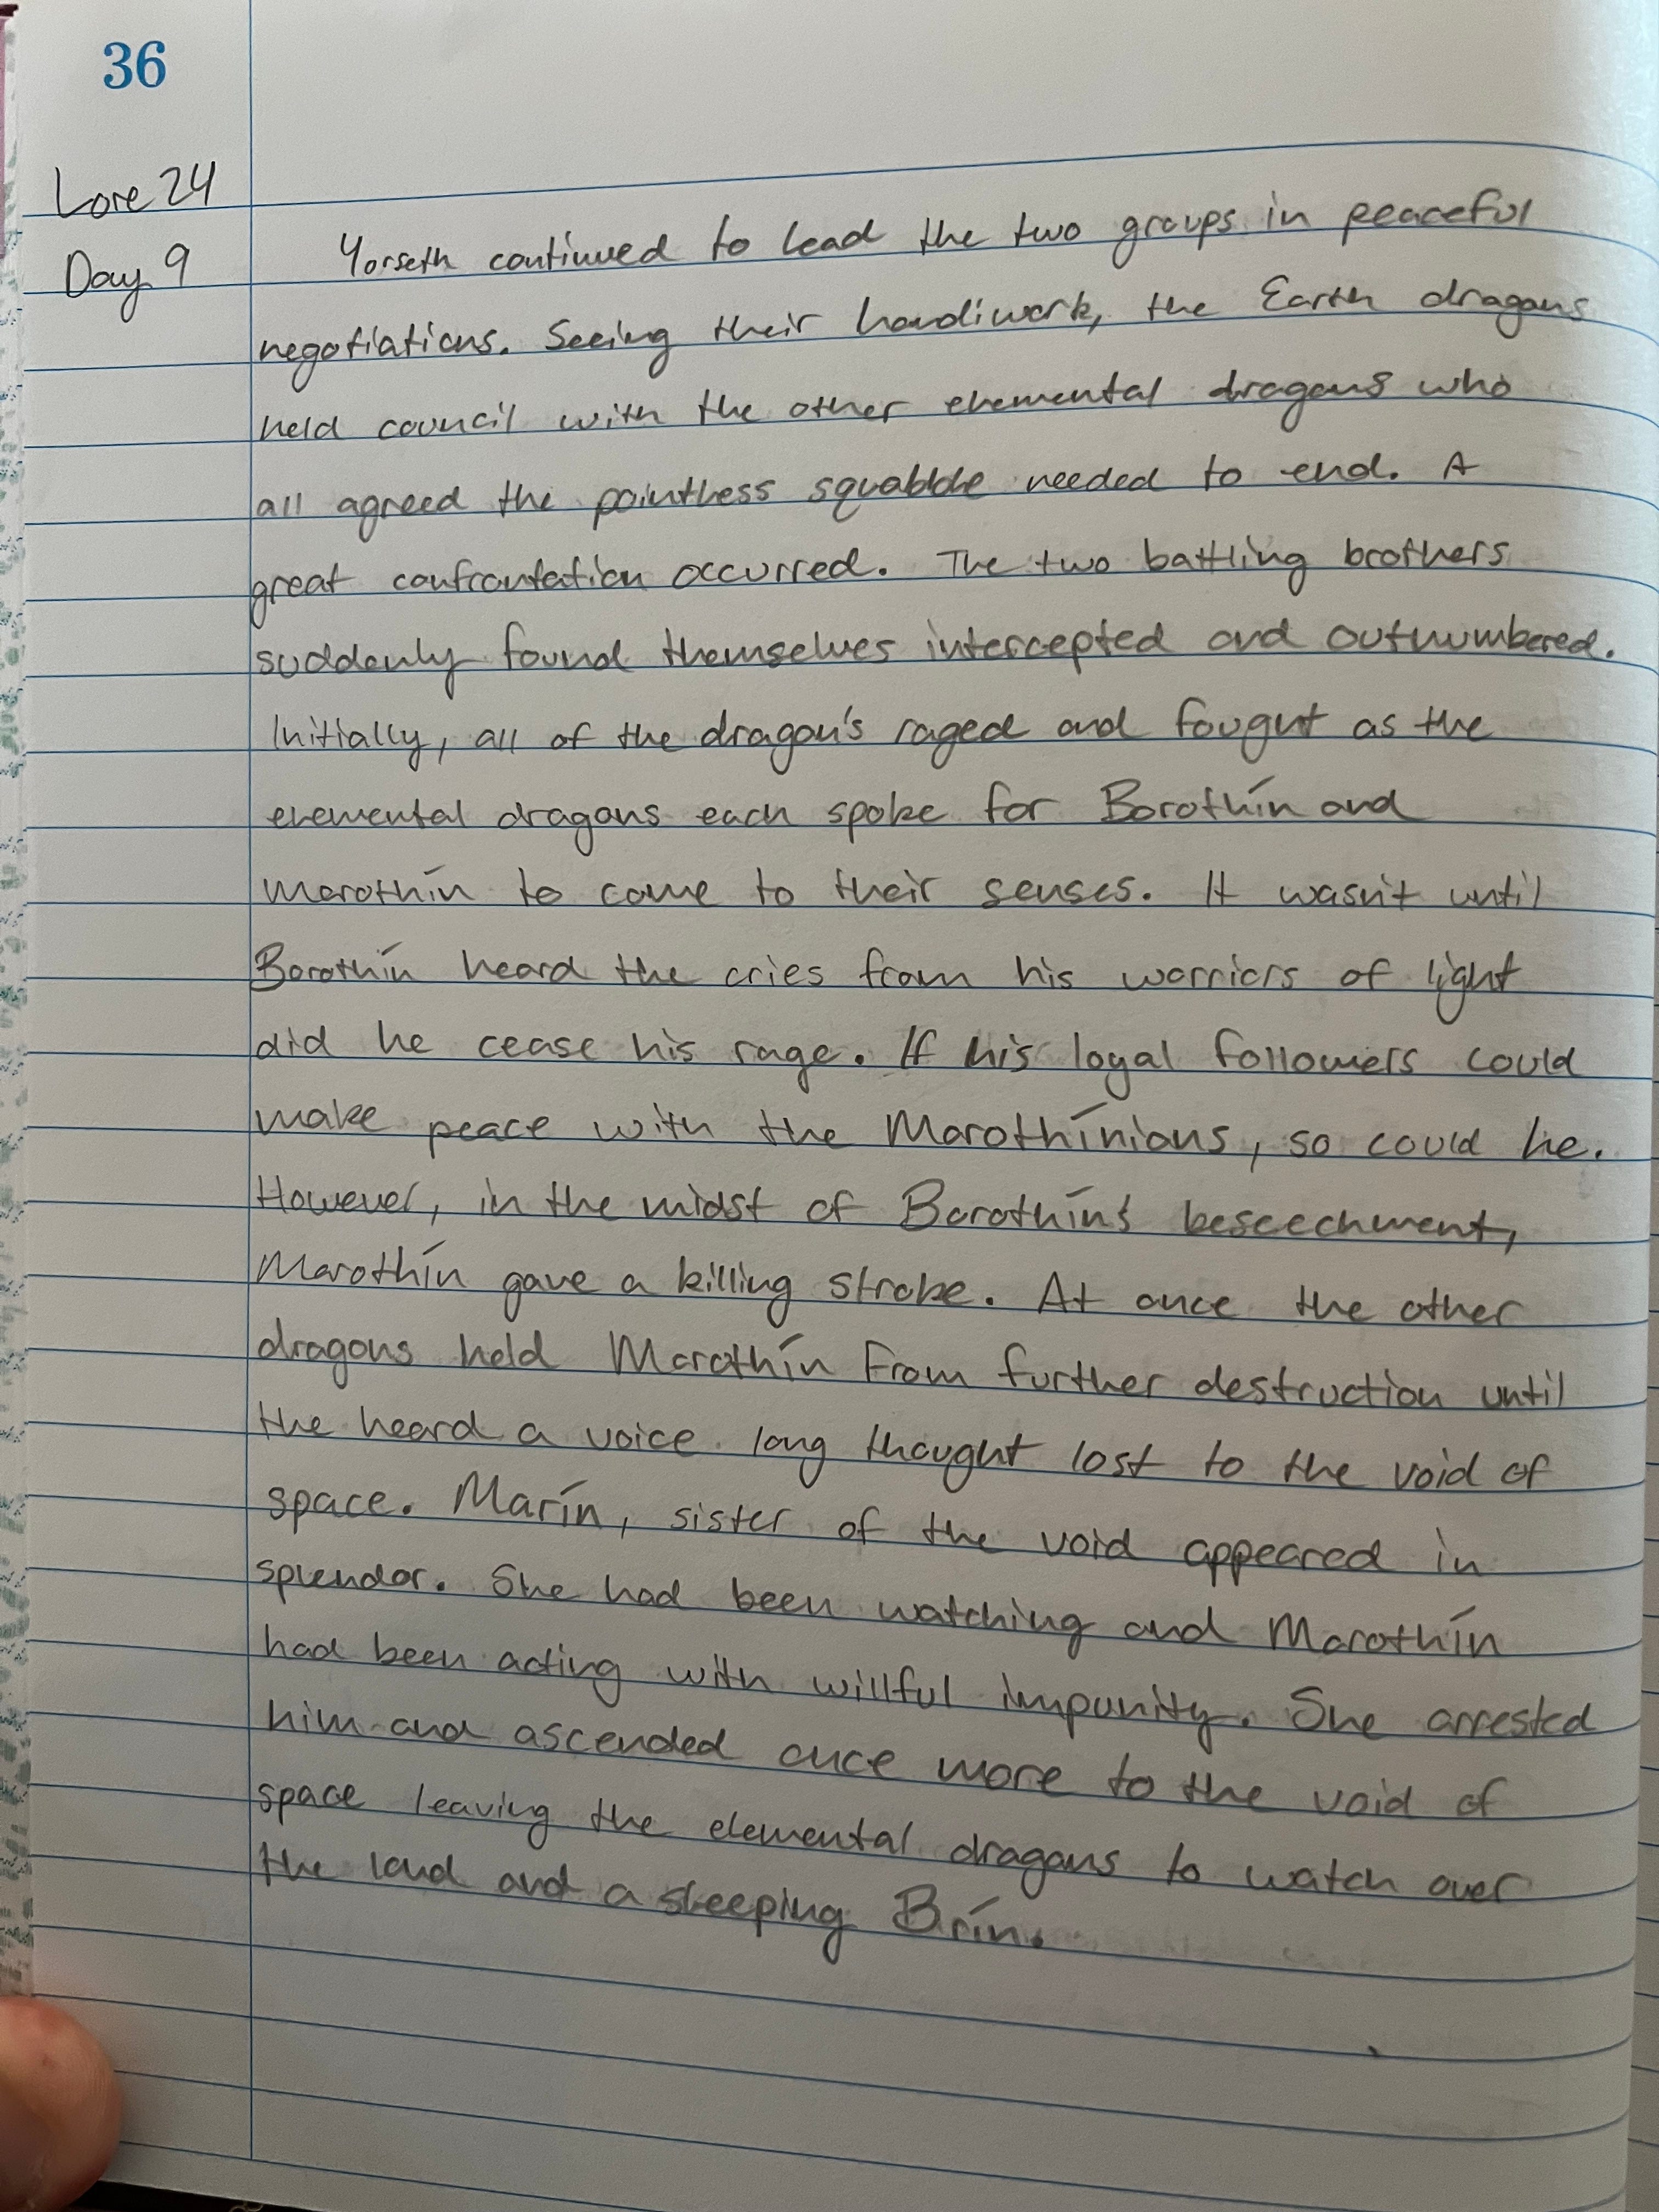 36
Lore 24
Day 9
Yorseth continued to lead the two groups in peaceful
negotiations. Seeing their handiwork, the Earth dragons
held council with the other elemental dragons who
all agreed the pointless squabble needed to end. A
great confrontation occurred. The two battling brothers
suddenly found themselves intercepted and outnumbered.
Initially, all of the dragon's raged and fought as the
elemental dragons each spoke for Borothín and
Morothín to come to their senses. It wasn't until
Borothín heard the cries from his warriors of light
did he cease his rage. If his loyal followers could
make peace with the Morothínians, so could he.
However, in the midst of Borothín's beseechment,
Morothín gave a killing stroke. At once the other
dragons held Morothín from further destruction until
the heard a voice long thought lost to the void of
space. Marín, sister of the void appeared in
splendor. She had been watching and Morothín
had been acting with willful impunity. She arrested
him and ascended once more to the void of
space leaving the elemental dragons to watch over
the land and a sleeping Brín.